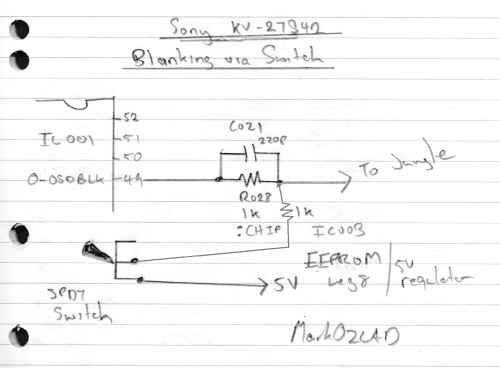 Sony KV-27S42
Blanking via Switch
52
IC001
51
50
O-OSDBLK
49
C021
220p
R028
1k
:CHIP
1k
To Jungle
IC003
EEPROM
Leg 8
5V
regulator
5V
SPDT
Switch
MarkOZLAD